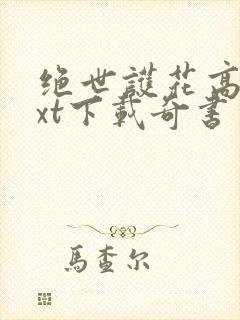 绝世護花高
xt下載奇書
馬查尔